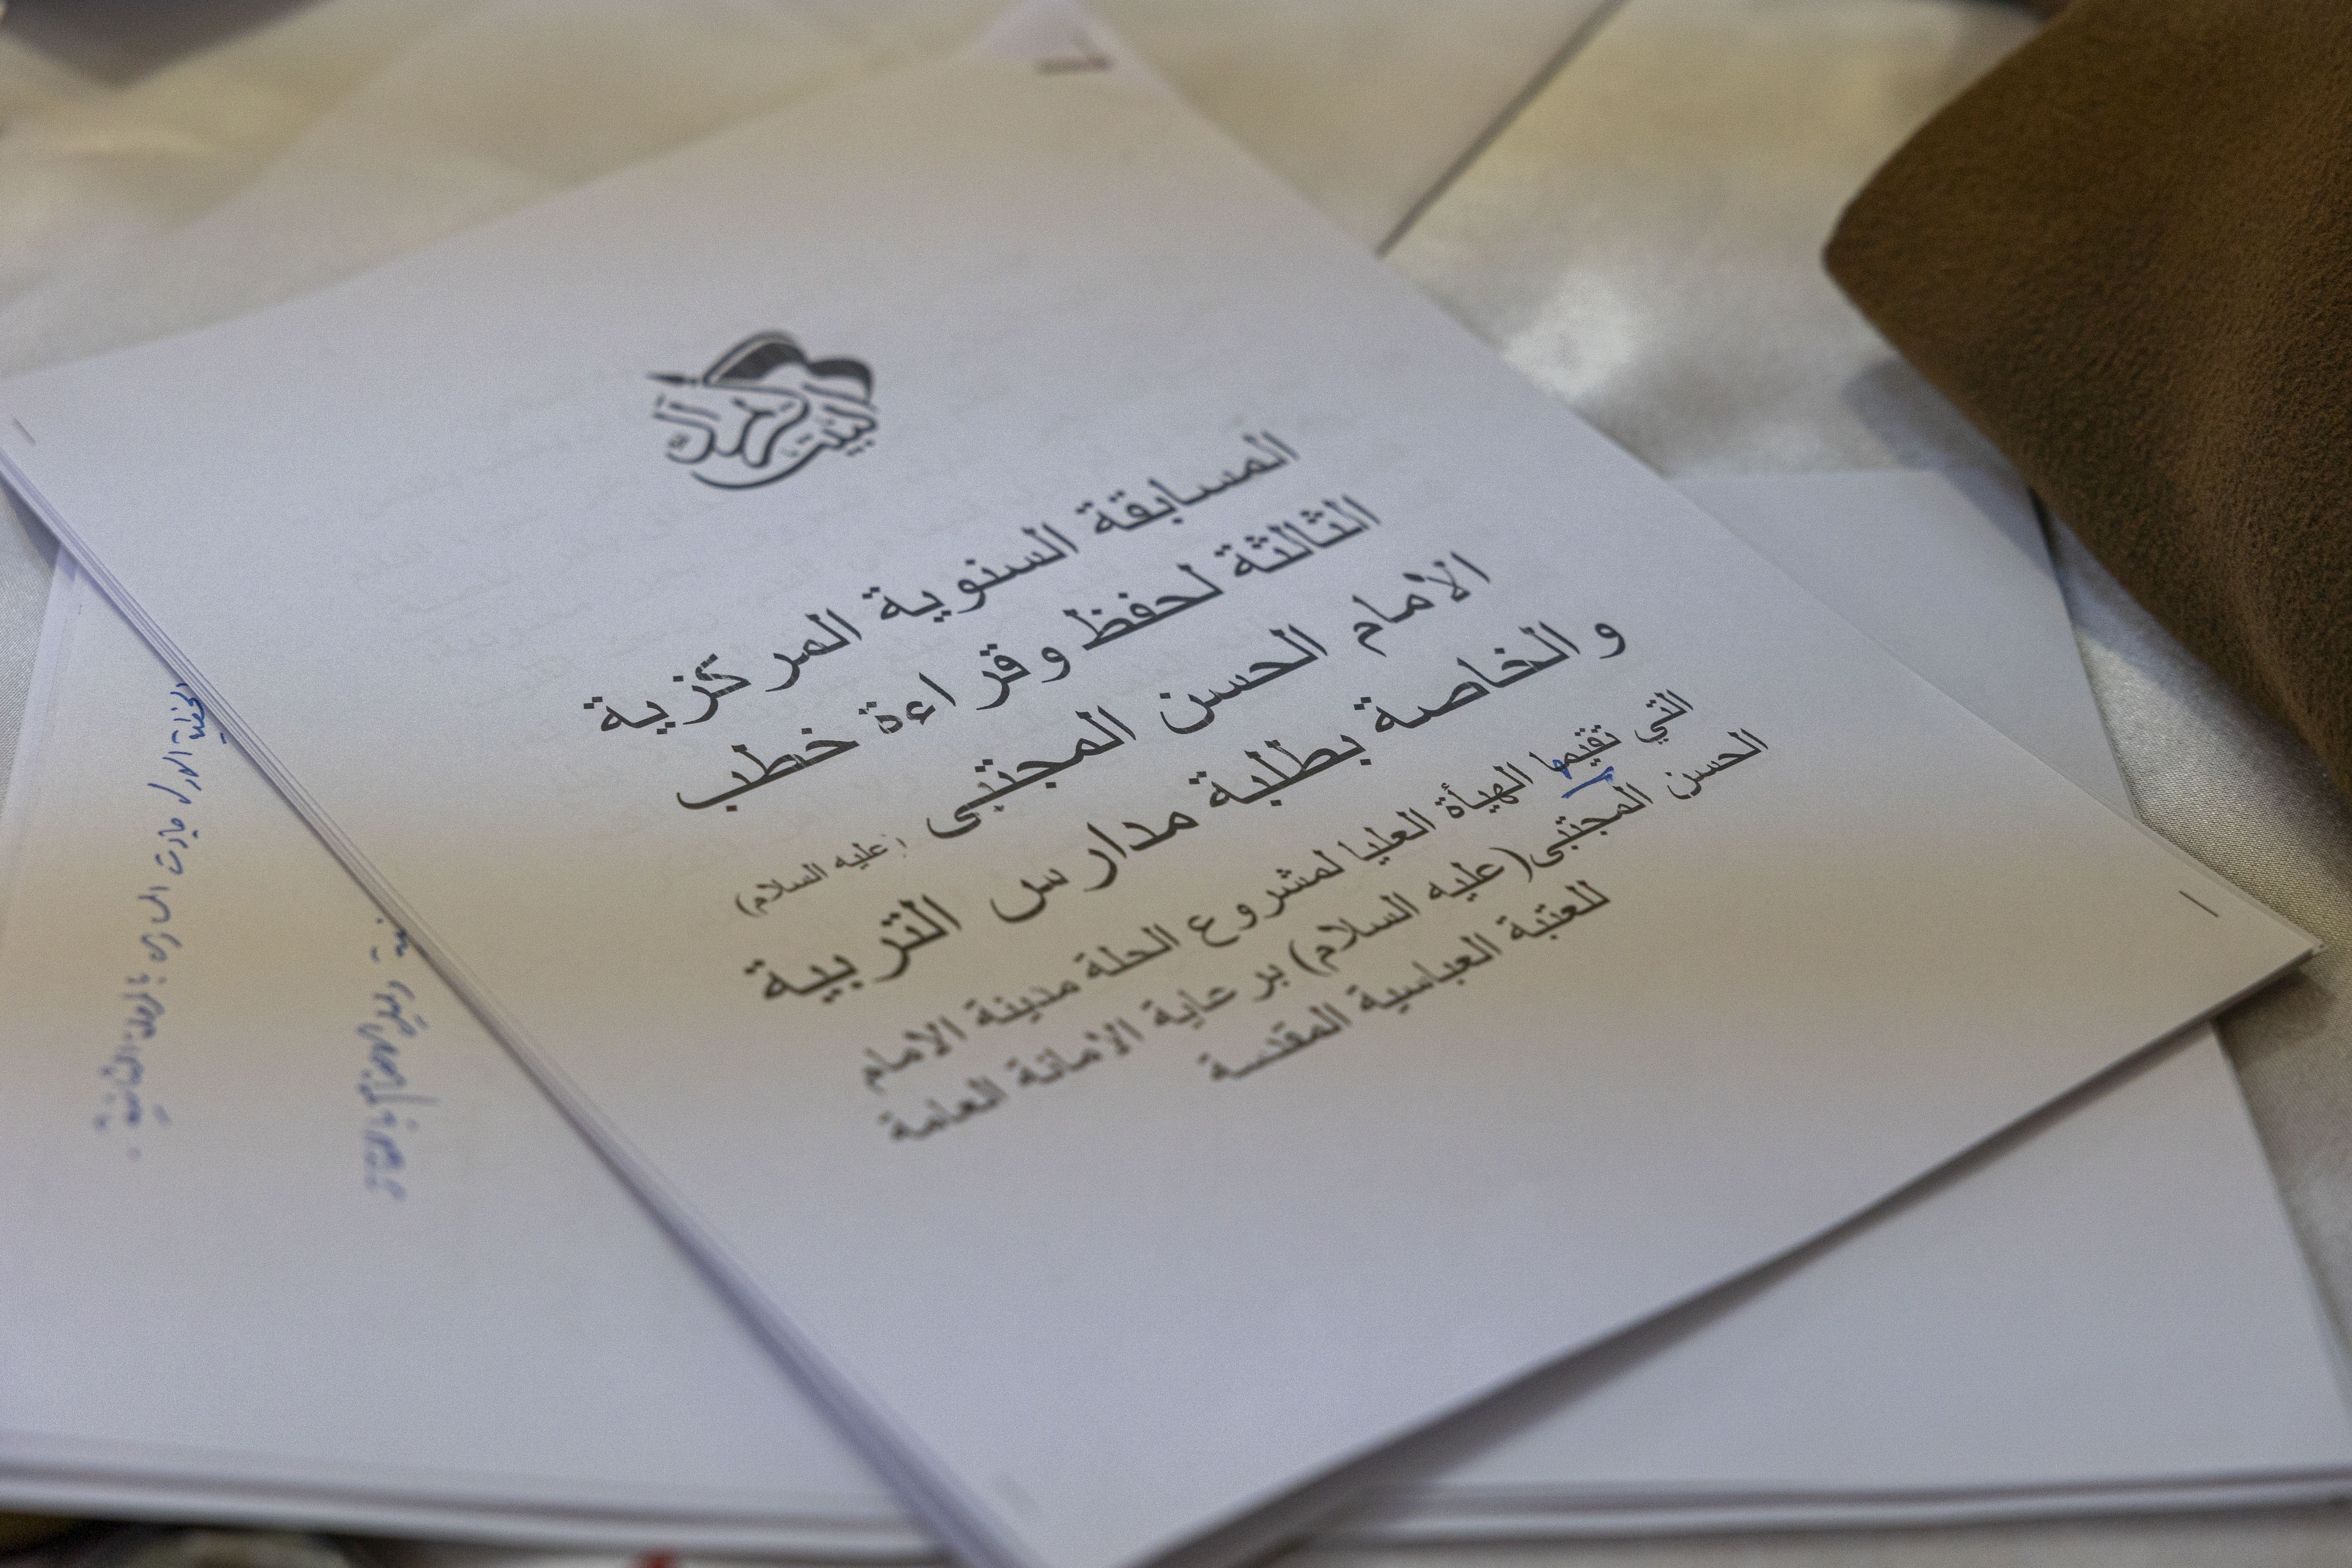 المسابقة السنوية المركزية
الثالثة لحفظ وقراءة خطب
الأمام الحسن المجتبى (عليه السلام)
والخاصة بطلبة مدارس التربية
التي تقيمها الهيأة العليا لمشروع الحلة مدينة الامام
الحسن المجتبى(عليه السلام) برعاية الامانة العامة
للعتبة العباسية المقدسة